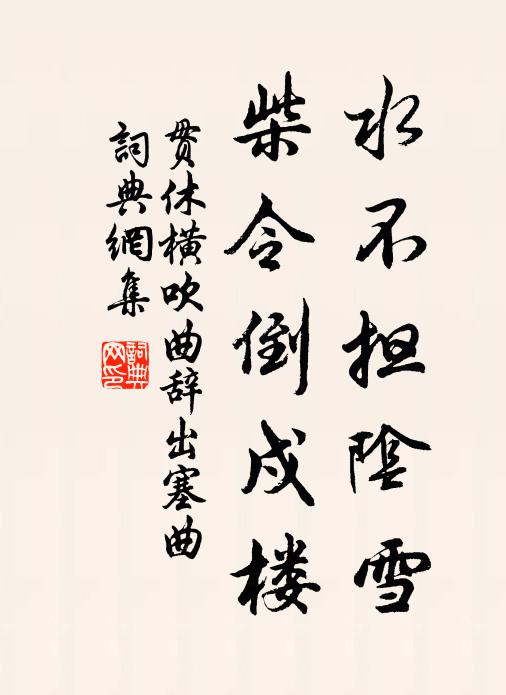 水不担陰雪
柴令倒戍楼
贯休横吹曲辞出塞曲
詞典網集
詞典网印